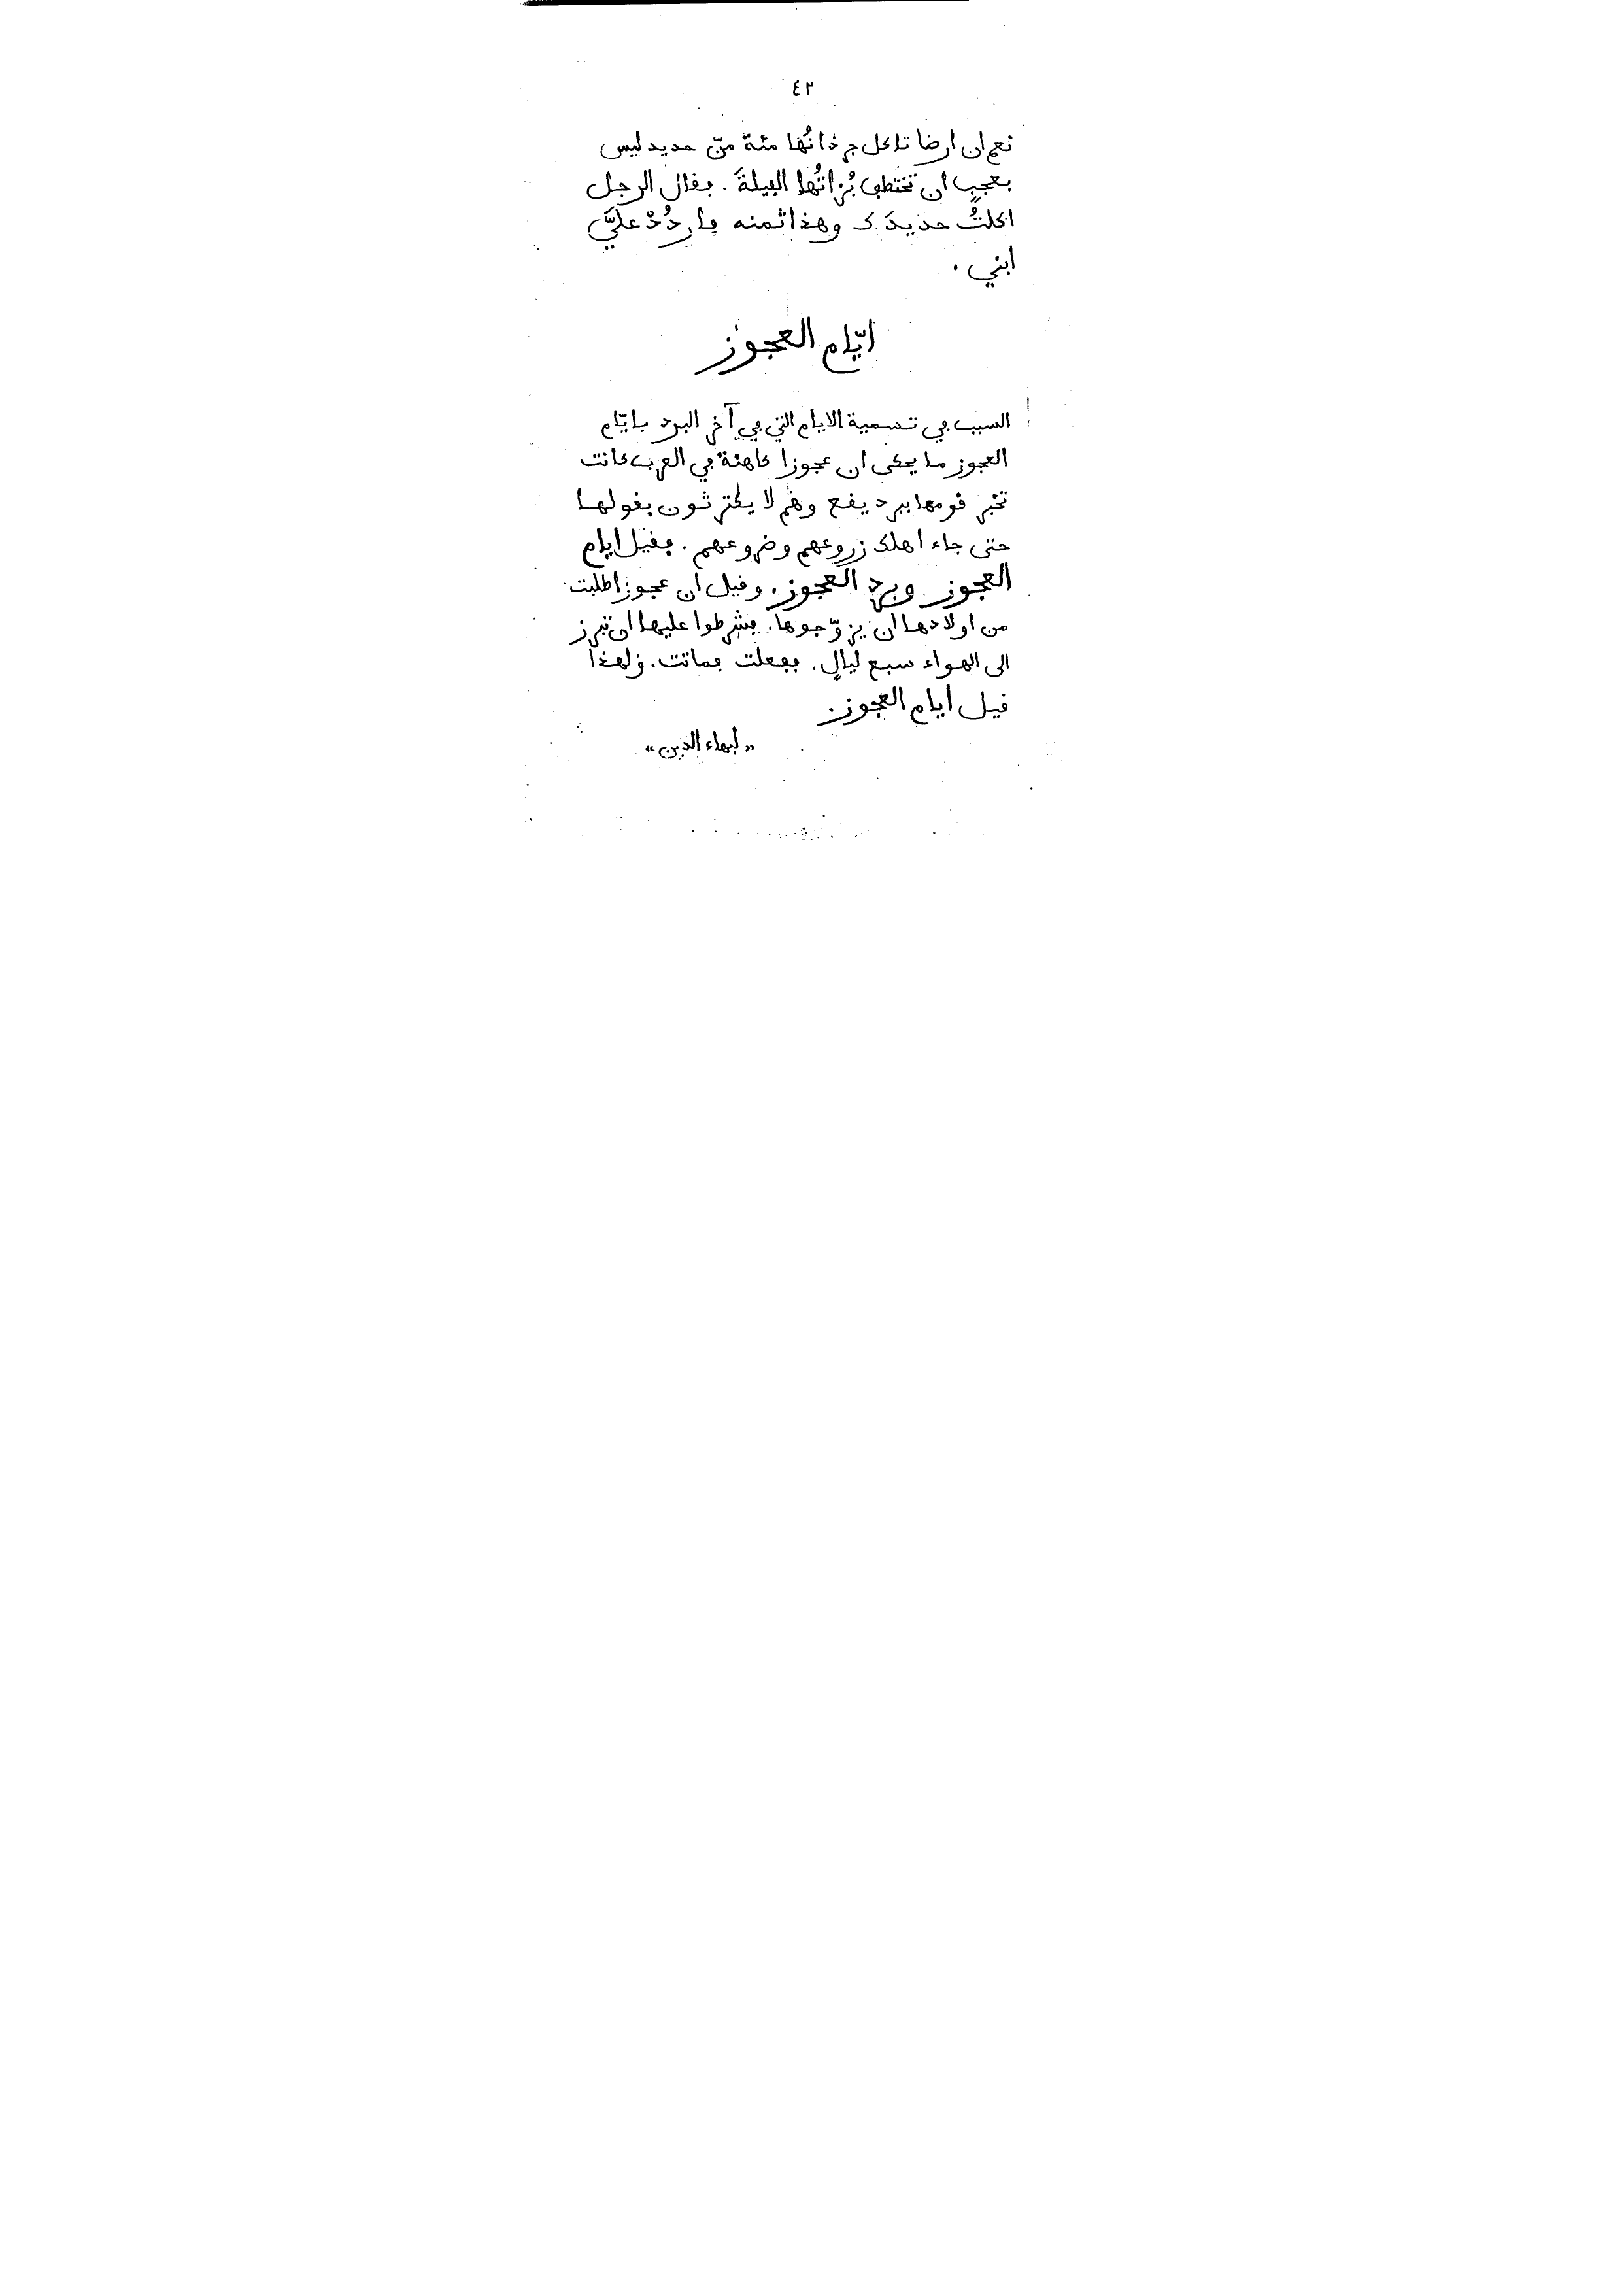 ٤٢
نعم ان ارضا تاكل جرذانُها مئة منّ حديد ليس
بعجبٍ ان تختطف بُزاتُها الفيلةَ . فقال الرجل
اكلتُ حديدَك وهذا ثمنه فاردُدْ عليَّ
ابني .
ايّام العجوز
السبب في تسمية الايام التي في آخر البرد بايّام
العجوز ما يحكى ان عجوزا كاهنة في العرب كانت
تخبر قومها ببرد يقع وهم لا يكترثون بقولها
حتى جاء اهلك زروعهم وضروعهم . فقيل ايام
العجوز وبرد العجوز . وقيل ان عجوزا طلبت
من اولادها ان يزوّجوها . فشرطوا عليها ان تبرز
الى الهواء سبع ليالٍ . ففعلت فماتت . ولهذا
قيل ايام العجوز
« لبهاء الدين »